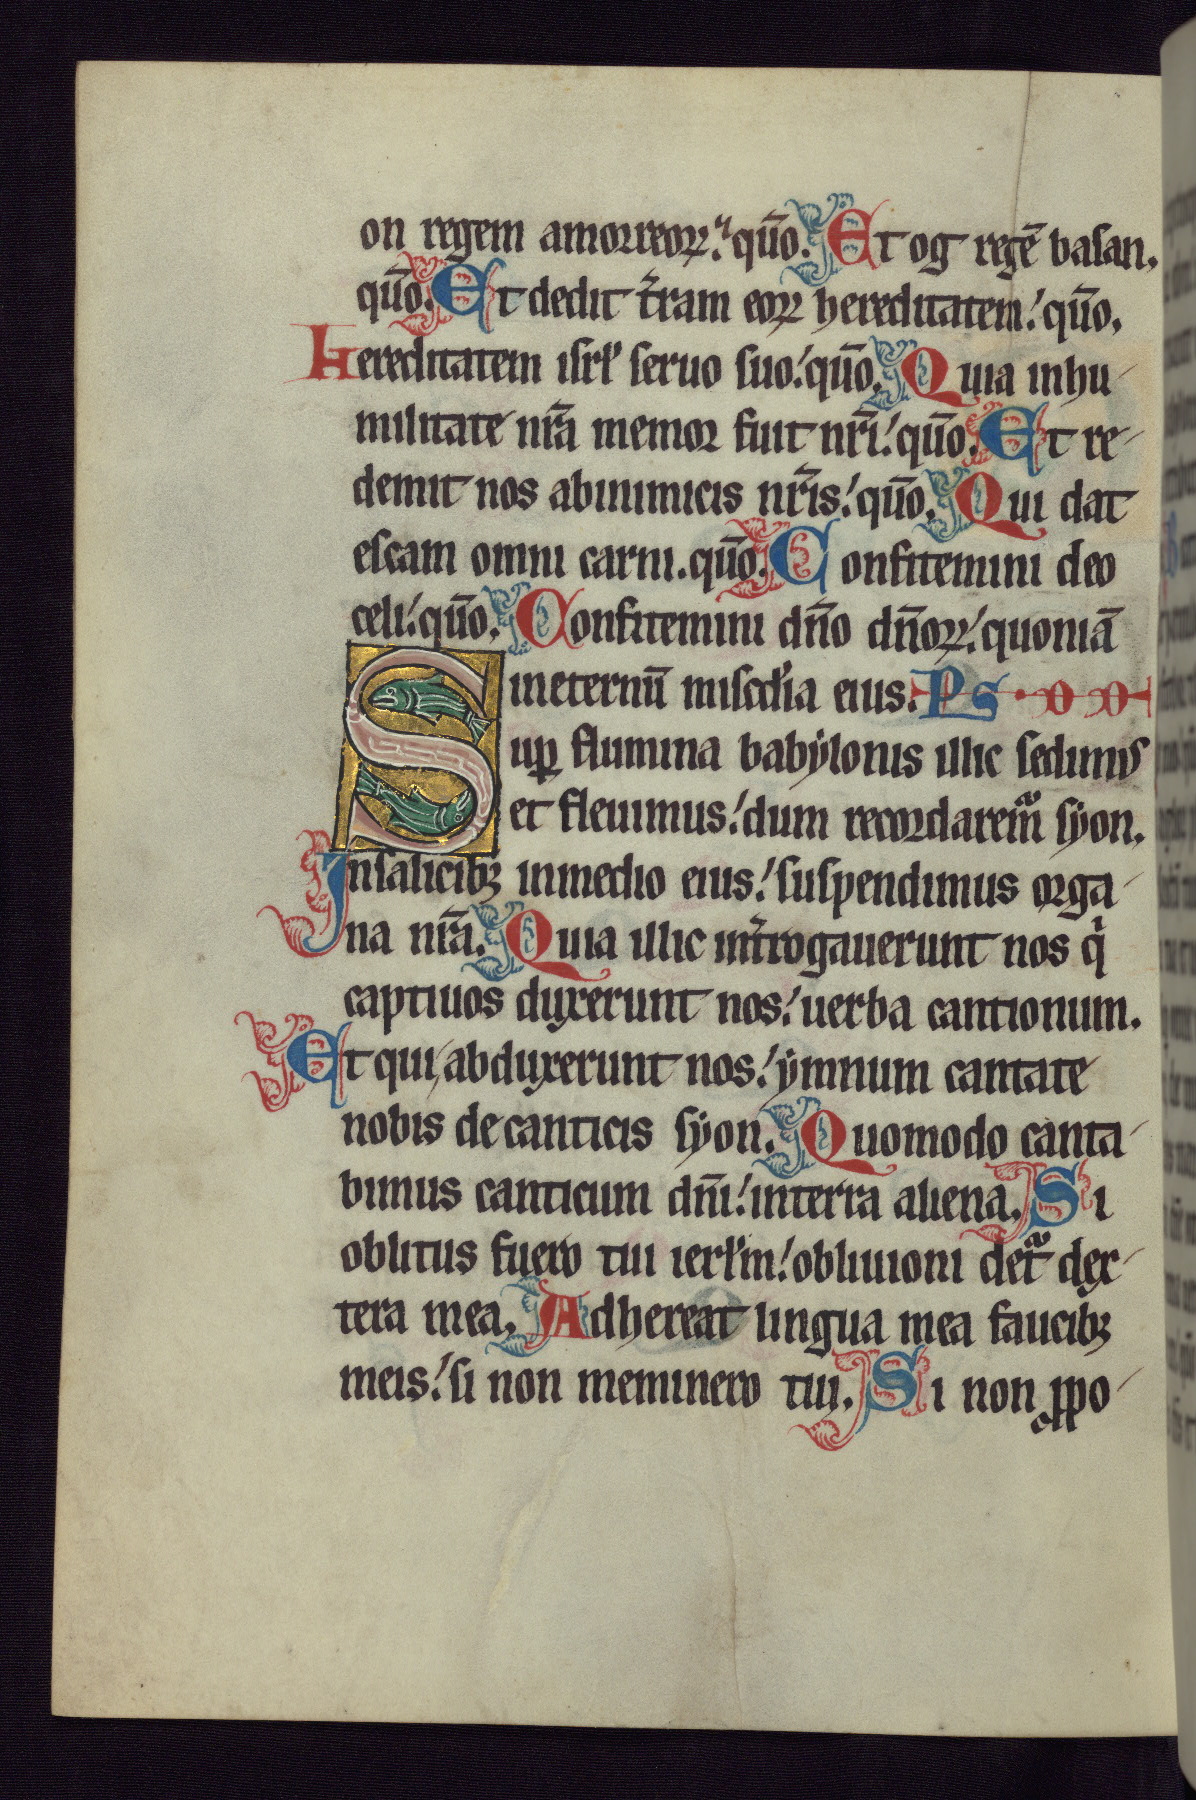 on regem amorreoꝝ: qūo. Et og regē basan,
qūo. Et dedit t̄ram eoꝝ hereditatem: qūo,
Hereditatem isrł seruo suo: qūo. Quia inhu-
militate nr̄a memor fuit nr̄i: qūo. Et re-
demit nos abinimicis nr̄is: qūo. Qui dat
escam omni carni. qūo. Confitemini deo
celi: qūo. Confitemini dn̄o dn̄oꝝ: quoniā
ineternū misc̄dia eius. Ps
Suꝑ flumina babẏlonis illic sedimus
et fleuimus: dum recordarem̄ sẏon.
Insalicibꝫ inmedio eius: suspendimus orga-
na nr̄a. Quia illic int̄rogauerunt nos qͥ
captiuos duxerunt nos: uerba cantionum.
Et qui abduxerunt nos: ẏmnum cantate
nobis de canticis sẏon. Quomodo canta-
bimus canticum dn̄i: interra aliena. Si
oblitus fuero tui ierłm: obliuioni det̄ dex-
tera mea. Adhereat lingua mea faucibꝫ
meis: si non meminero tui. Si non ꝓpo-